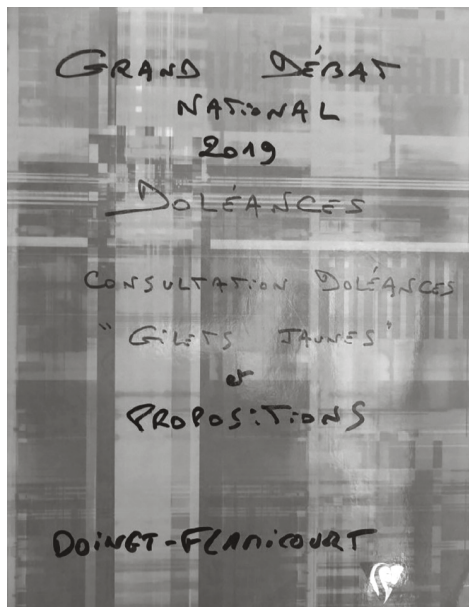 GRAND DÉBAT
NATIONAL
2019
DOLÉANCES
CONSULTATION DOLÉANCES
"GILETS JAUNES"
et
PROPOSITIONS
DOINGT-FLAMICOURT